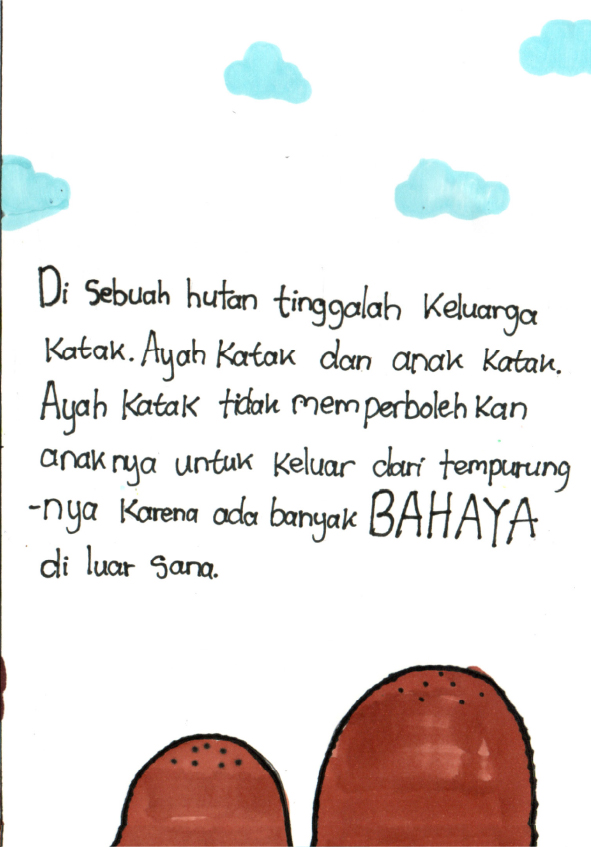 Di Sebuah hutan tinggalah Keluarga
Katak. Ayah Katak dan anak Katak.
Ayah Katak tidak memperbolehkan
anaknya untuk Keluar dari tempurung
-nya Karena ada banyak BAHAYA
di luar Sana.